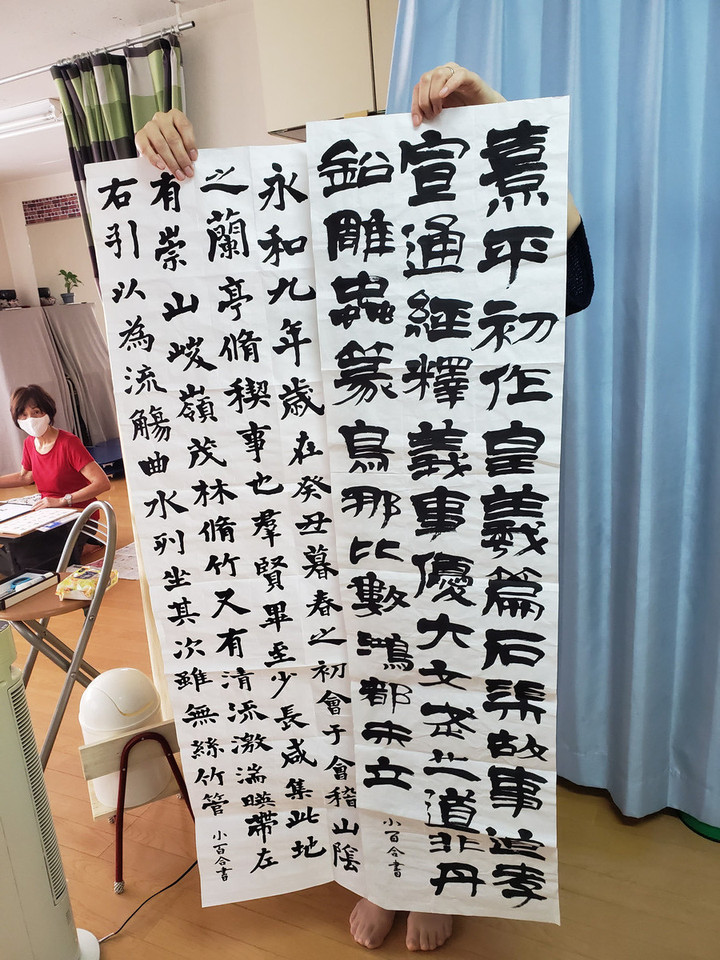 熹平初作皇羲篇石渠故事追孝
宣通經釋義事優大文武之道非丹
鉛雕蟲篆鳥那比數鴻都未立
小百合書
永和九年歲在癸丑暮春之初會于會稽山陰
之蘭亭脩稧事也羣賢畢至少長咸集此地
有崇山峻嶺茂林脩竹又有清流激湍暎帶左
右引以為流觴曲水列坐其次雖無絲竹管
小百合書